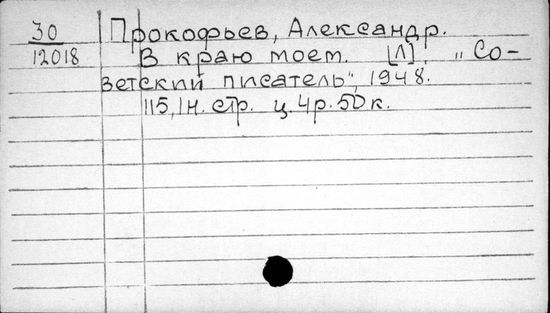 30 Прокофьев, Александр.
12018 В краю моем. [Л] „Со-
ветский писатель", 1948.
115, 1н. стр. ц. 4р. 50к.